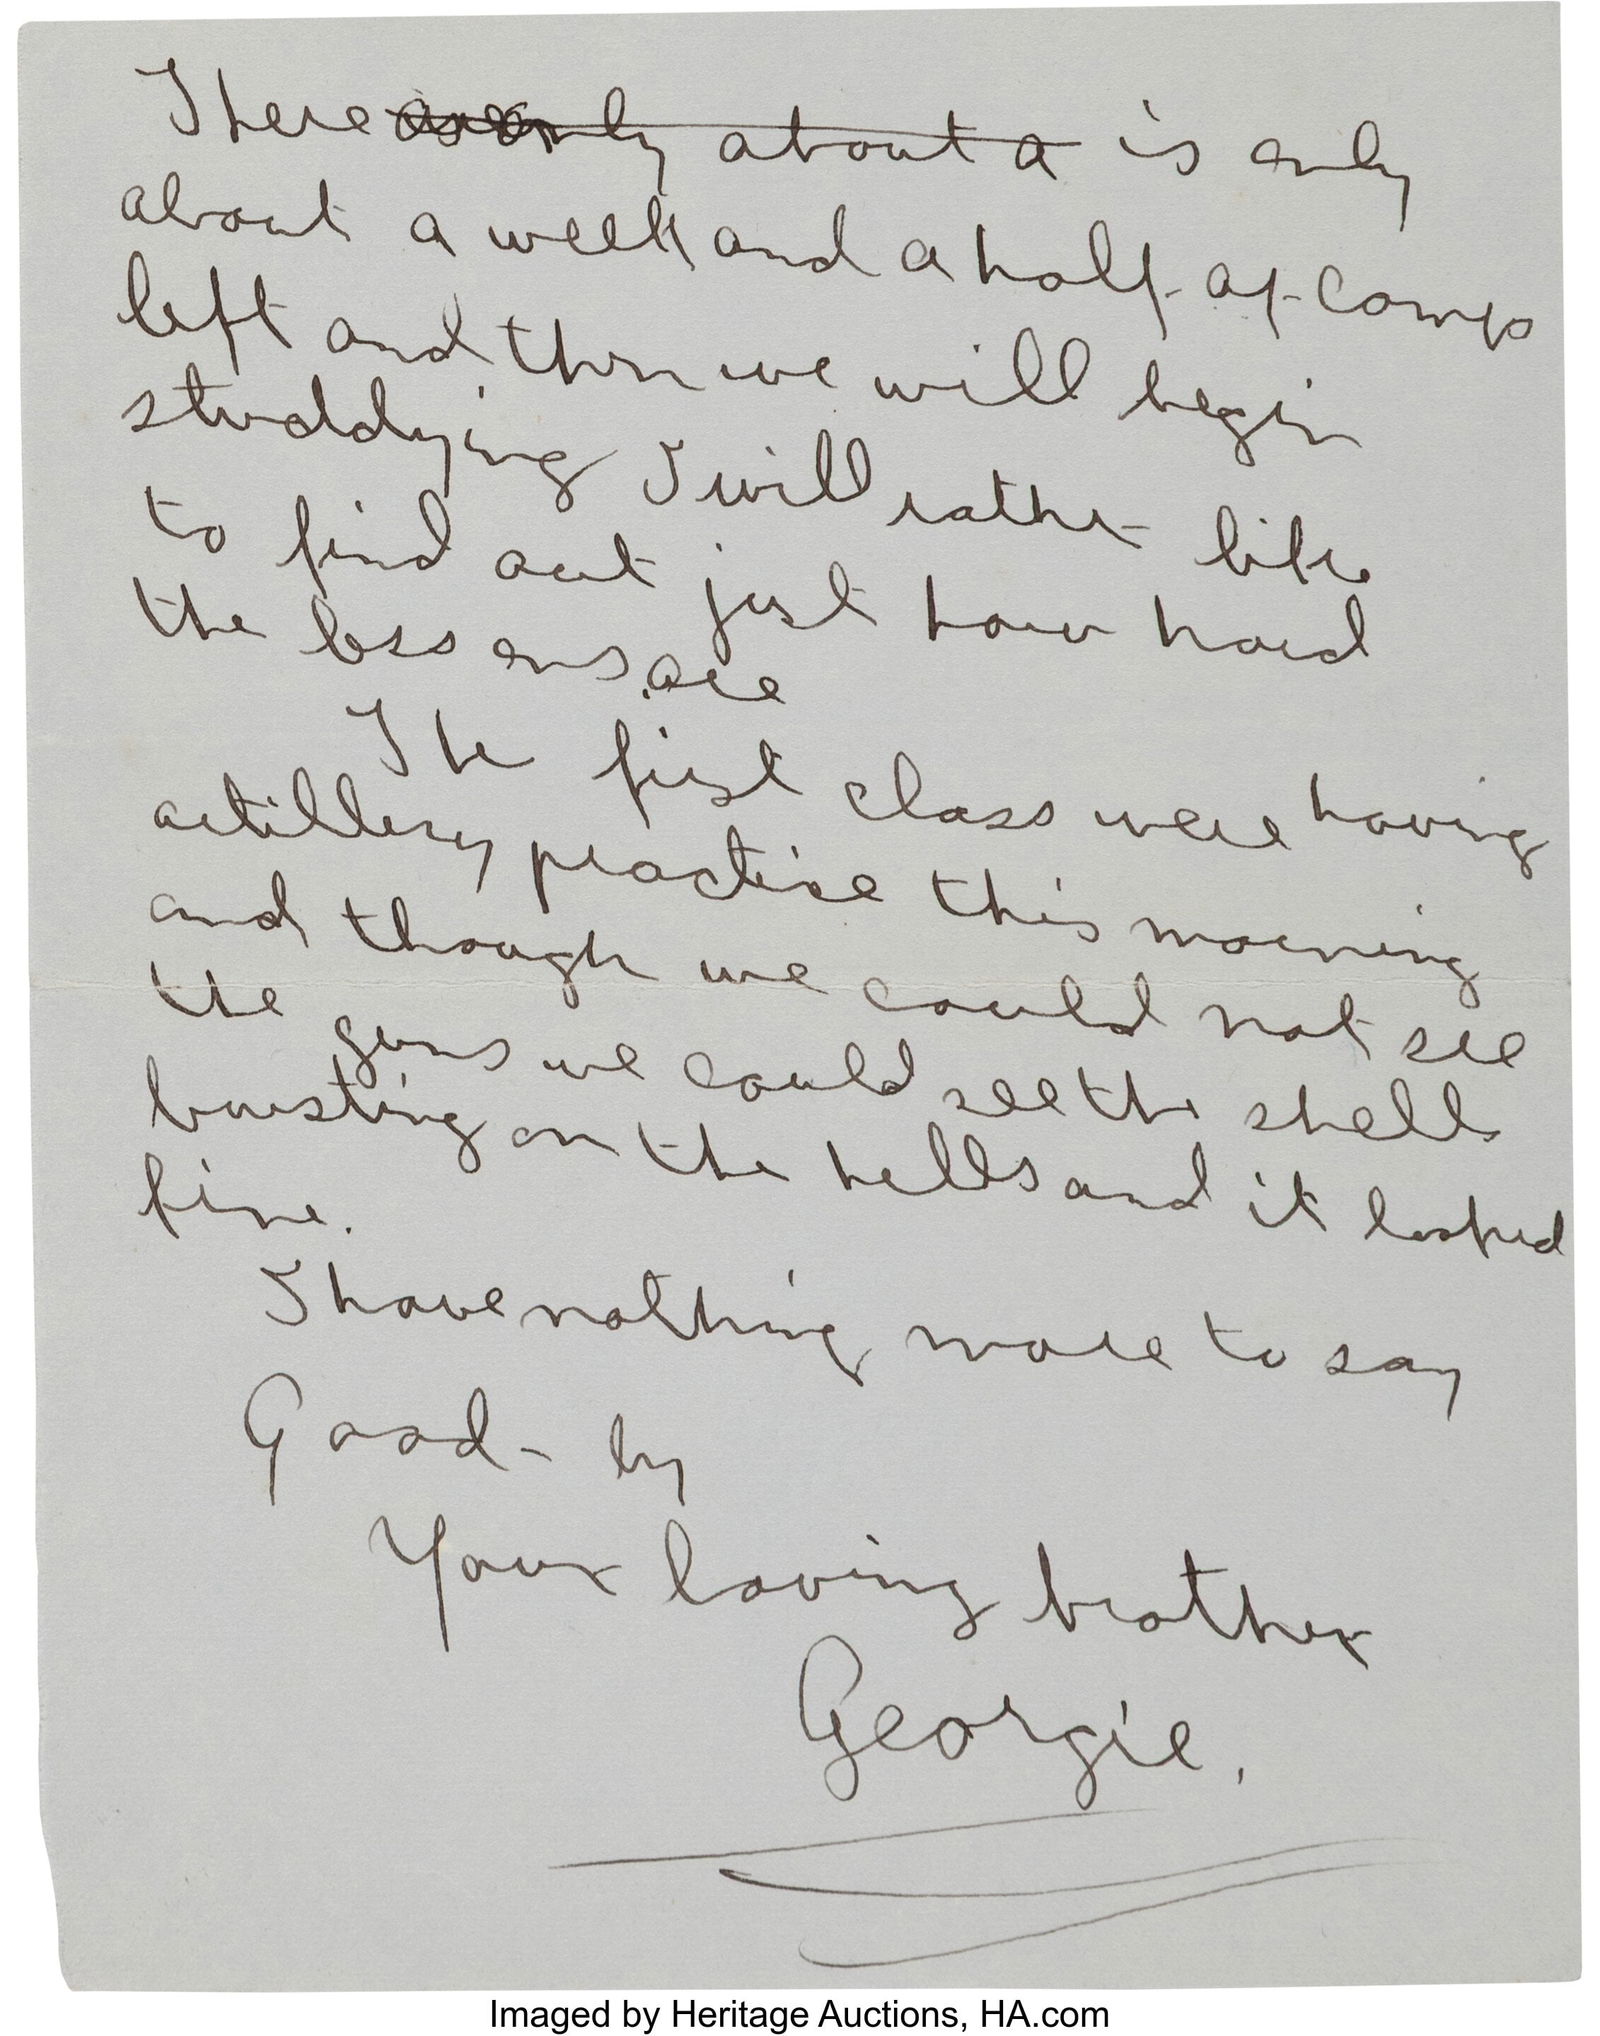 There are only about a is only
about a week and a half of camp
left and then we will begin
studdying I will rather like
to find out just how hard
the lessons are
The first class were having
artillery practice this morning
and though we could not see
the guns we could see the shells
bursting on the hells and it looked
fine.
I have nothing more to say
Good-by
Your loving brother
Georgie,
Imaged by Heritage Auctions, HA.com